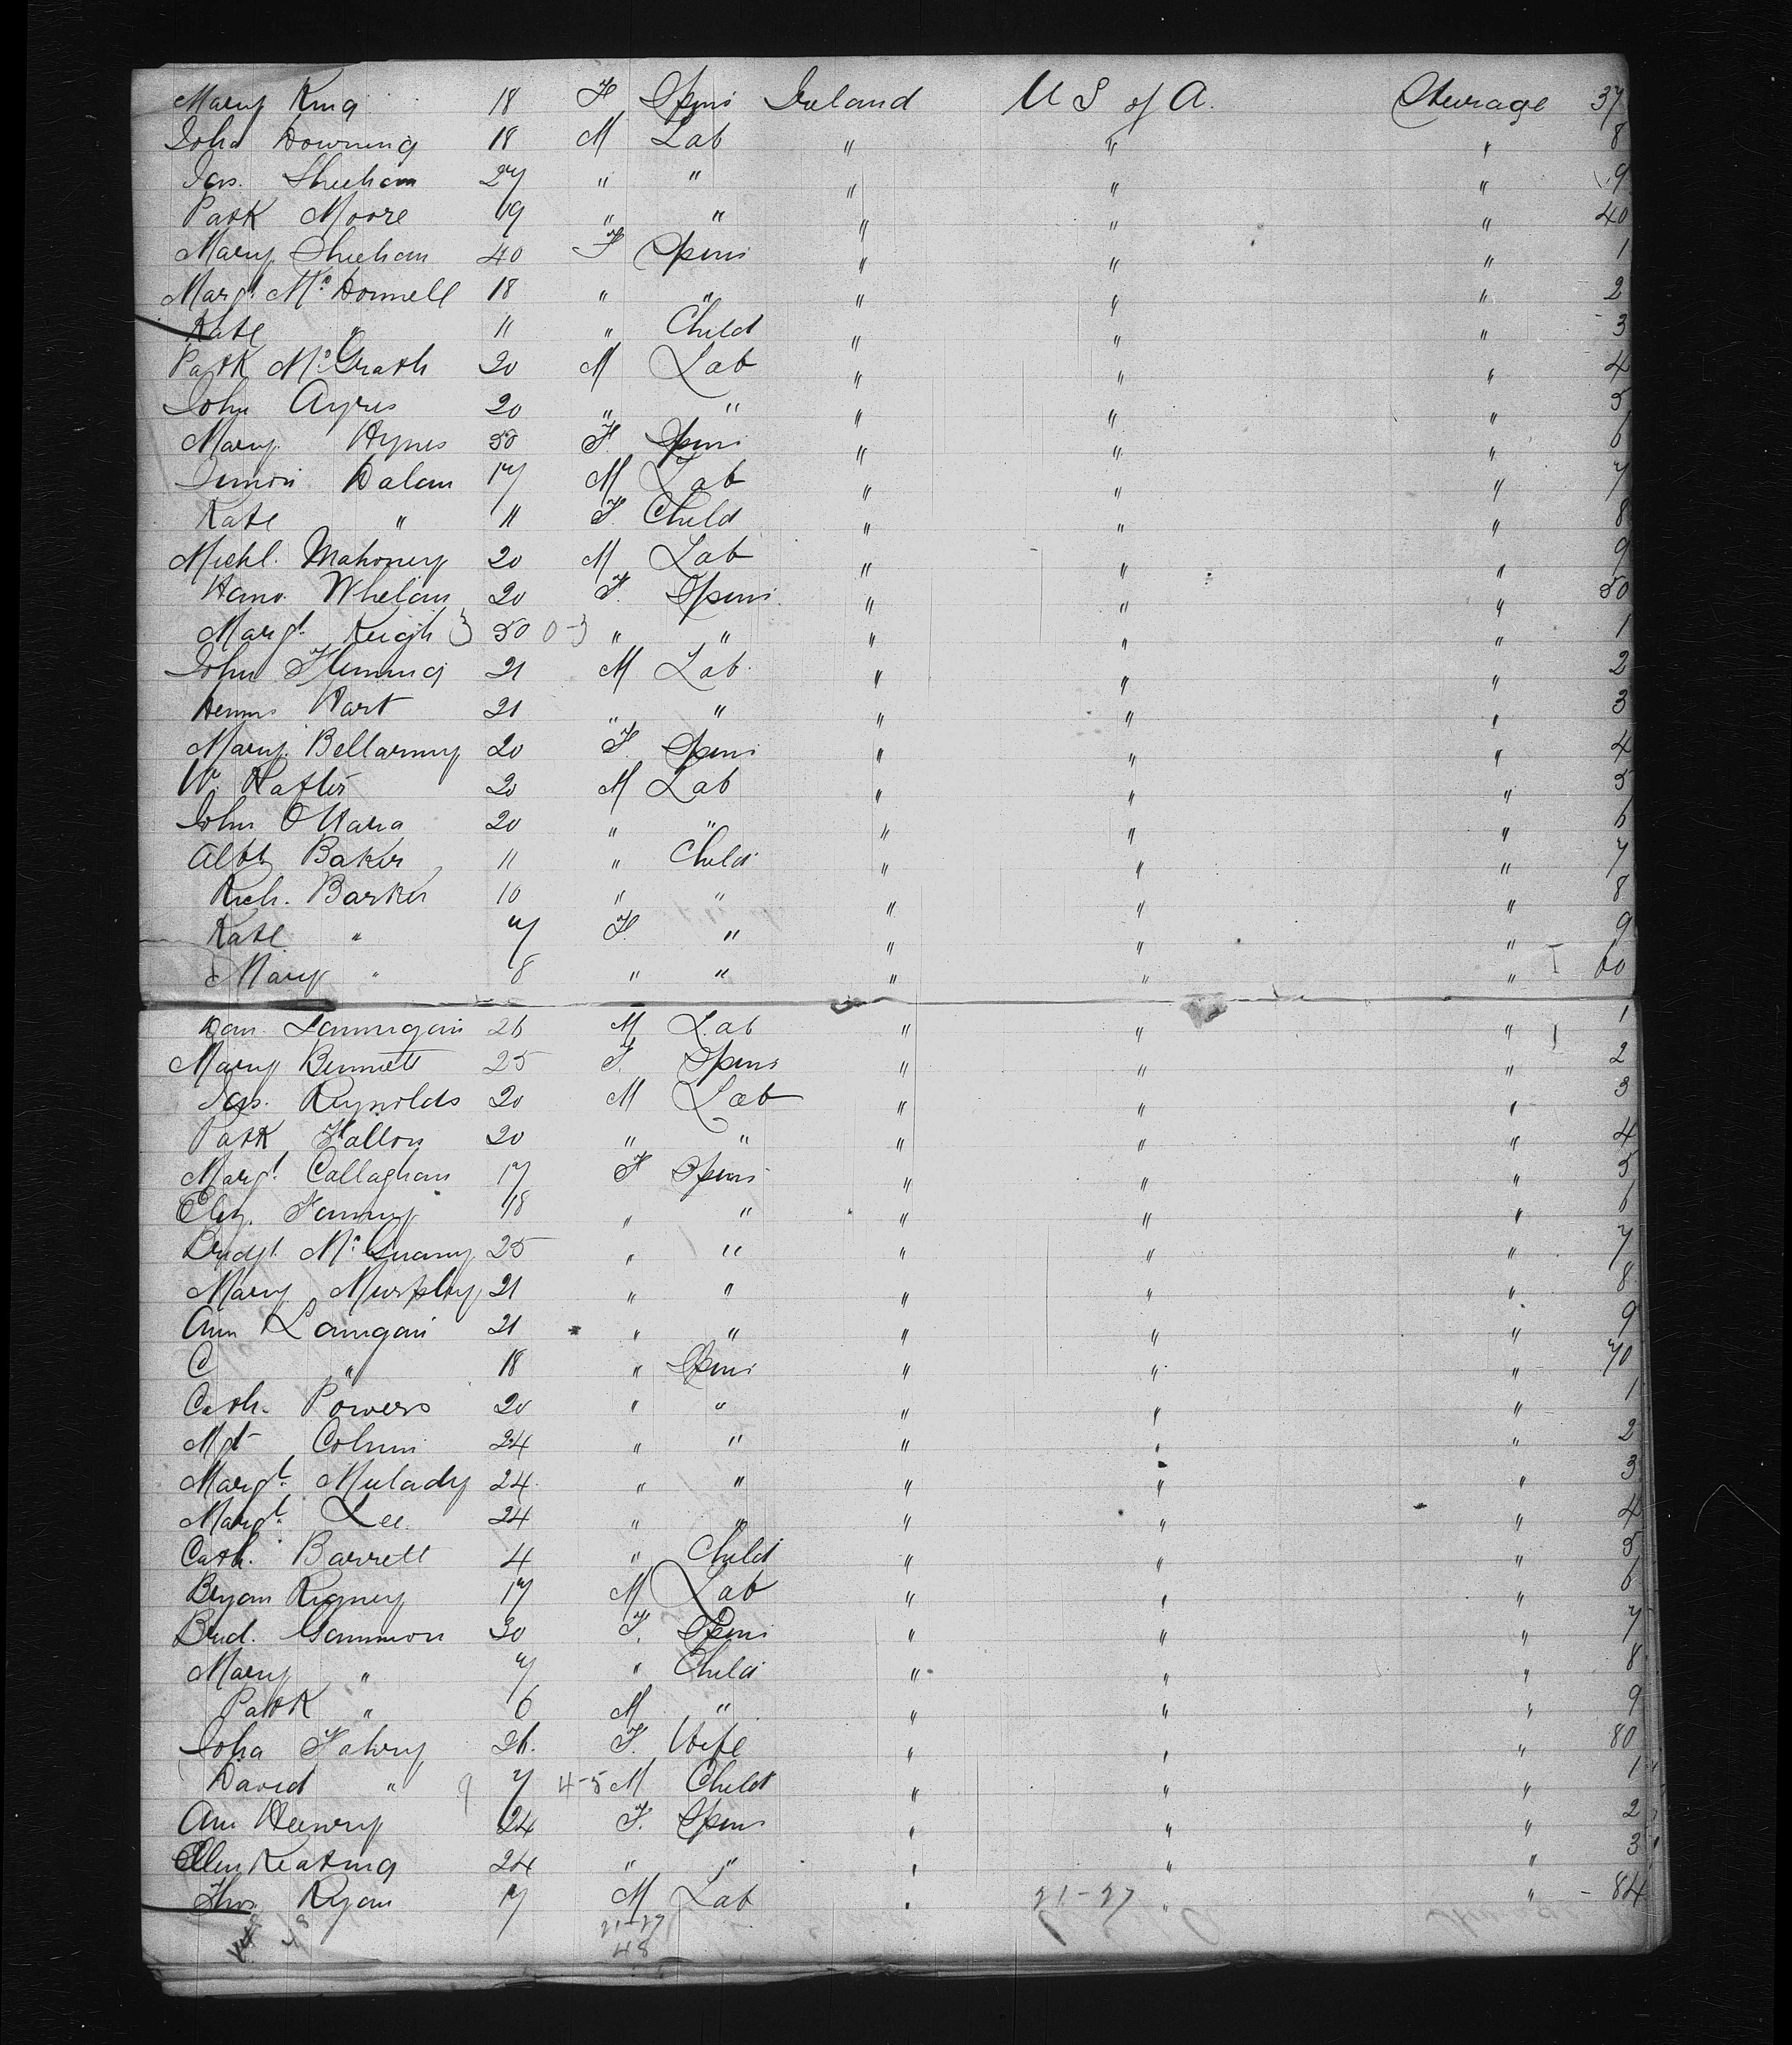 Mary King 18 F Spins Ireland U S of A. Steerage 37
John Downing 18 M Lab " " " 8
Jas. Sheehan 27 " " " " " 9
Patk Moore 19 " " " " " 40
Mary Sheehan 40 F Spins " " " 1
Margt. Mc Donnell 18 " " " " " 2
Kate " 11 " Child " " " 3
Patk McGrath 20 M Lab " " " 4
John Ayres 20 " " " " " 5
Mary Hynes 50 F. Spins " " " 6
Simon Dalam 17 M Lab " " " 7
Kate " 11 F. Child " " " 8
Michl. Mahoney 20 M Lab " " " 9
Hano. Whelan 20 F. Spins. " " " 50
Margt. Keigh 3 50 0-3 " " " " " 1
John Fleming 21 M Lab. " " " 2
Dennis Hart 21 " " " " " 3
Mary Bellarmy 20 F. Spins " " " 4
W. Rafter 20 M Lab " " " 5
John O'Hara 20 " " " " " 6
Albt Baker 11 " Child " " " 7
Rich. Barker 10 " " " " " 8
Kate " 7 F. " " " " 9
Mary " 8 " " " " " 60
Dan. Lannigan 26 M Lab " " " 1
Mary Bennett 25 F. Spins " " " 2
Jas. Reynolds 20 M Lab " " " 3
Patk Fallon 20 " " " " " 4
Margt. Callaghan 17 F Spins " " " 5
Eliz. Fanny 18 " " " " " 6
Bridgt. Mc 25 " " " " " 7
Mary Murphy 21 " " " " " 8
Ann Langan 21 " " " " " 9
C " 18 " Spins " " " 70
Cath. Powers 20 " " " " " 1
Mgt Colum 24 " " " " " 2
Margt. Mulady 24 " " " " " 3
Margt. Lee 24 " " " " " 4
Cath. Barrett 4 " Child " " " 5
Bryan Rigney 17 M Lab " " " 6
Brid. Gammon 30 F. Spins " " " 7
Mary " 7 " Child " " " 8
Patk " 6 M " " " " 9
Joha Fahey 26. F. Wife " " " 80
David " 9 7 4-5 M Child " " " 1
Ann Heenry 24 F. Spins " " " 2
Ellen Keating 24 " " " " " 3
Thos. Ryan 17 M Lab " 21-27 " " - 84
48 21-27
48